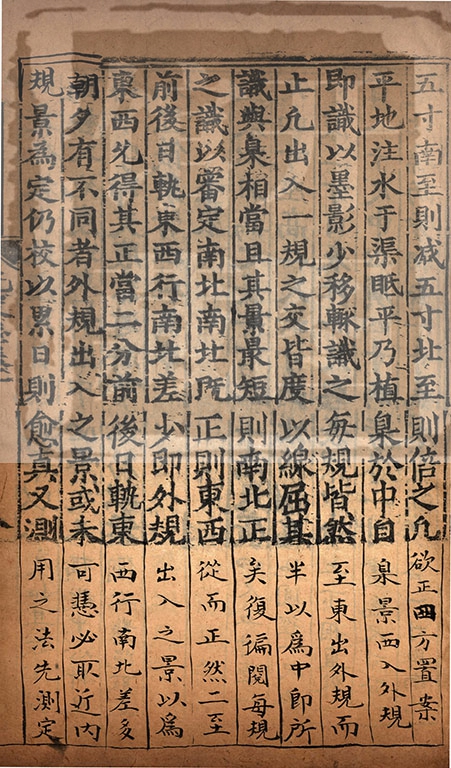 五寸南至則减五寸北至則倍之凢欲正四方置案
平地注水于渠眡平乃植臬於中自臬景西入外規
即識以墨影少移輙識之每規皆然至東出外規而
止凢出入一規之交皆度以線屈其半以爲中即所
識與臬相當且其景最短則南北正矣復徧閱每規
之識以審定南北南北既正則東西從而正然二至
前後日軌東西行南北差少即外規出入之景以爲
東西允得其正當二分前後日軌東西行南北差多
朝夕有不同者外規出入之景或未可憑必取近内
規景為定仍校以累日則愈真又測用之法先測定